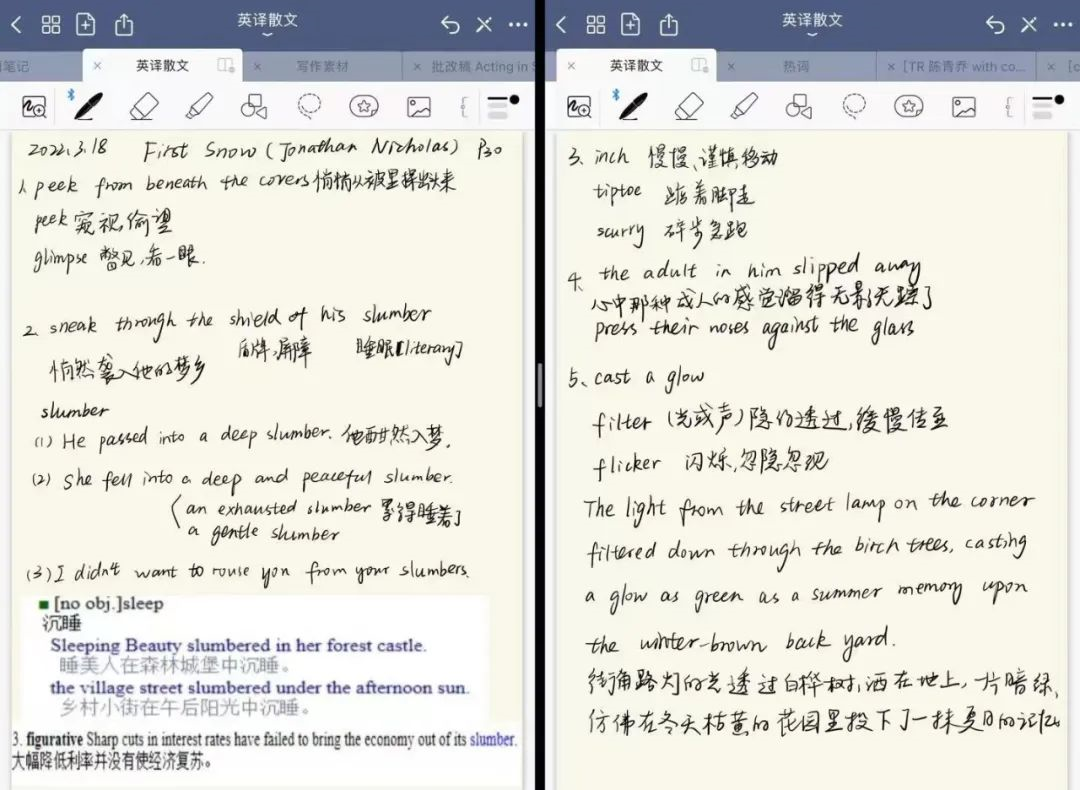 英译散文
笔记
英译散文
写作素材
批改稿 Acting in S
2022.3.18 First Snow (Jonathan Nicholas) P30
1. peek from beneath the covers 悄悄从被里探出头来
peek 窥视,偷望
glimpse 瞥见,看一眼.
2. sneak through the shield of his slumber
盾牌,屏障 睡眠[literary]
悄然袭入他的梦乡
slumber
(1) He passed into a deep slumber. 他酣然入梦.
(2) She fell into a deep and peaceful slumber.
an exhausted slumber 累得睡着了
a gentle slumber
(3) I didn't want to rouse you from your slumbers.
■ [no obj.]sleep
沉睡
Sleeping Beauty slumbered in her forest castle.
睡美人在森林城堡中沉睡。
the village street slumbered under the afternoon sun.
乡村小街在午后阳光中沉睡。
3. figurative Sharp cuts in interest rates have failed to bring the economy out of its slumber.
大幅降低利率并没有使经济复苏。
英译散文
英译散文
热词
[TR 陈青乔 with co...
[c
3、inch 慢慢、谨慎移动
tiptoe 踮着脚走
scurry 碎步急跑
4、the adult in him slipped away
心中那种成人的感觉溜得无影无踪了
press their noses against the glass
5、cast a glow
filter (光或声)隐约透过,缓慢传至
flicker 闪烁,忽隐忽现
The light from the street lamp on the corner
filtered down through the birch trees, casting
a glow as green as a summer memory upon
the winter-brown back yard.
街角路灯的光透过白桦树,洒在地上,一片暗绿,
仿佛在冬天枯黄的花园里投下了一抹夏日的记忆